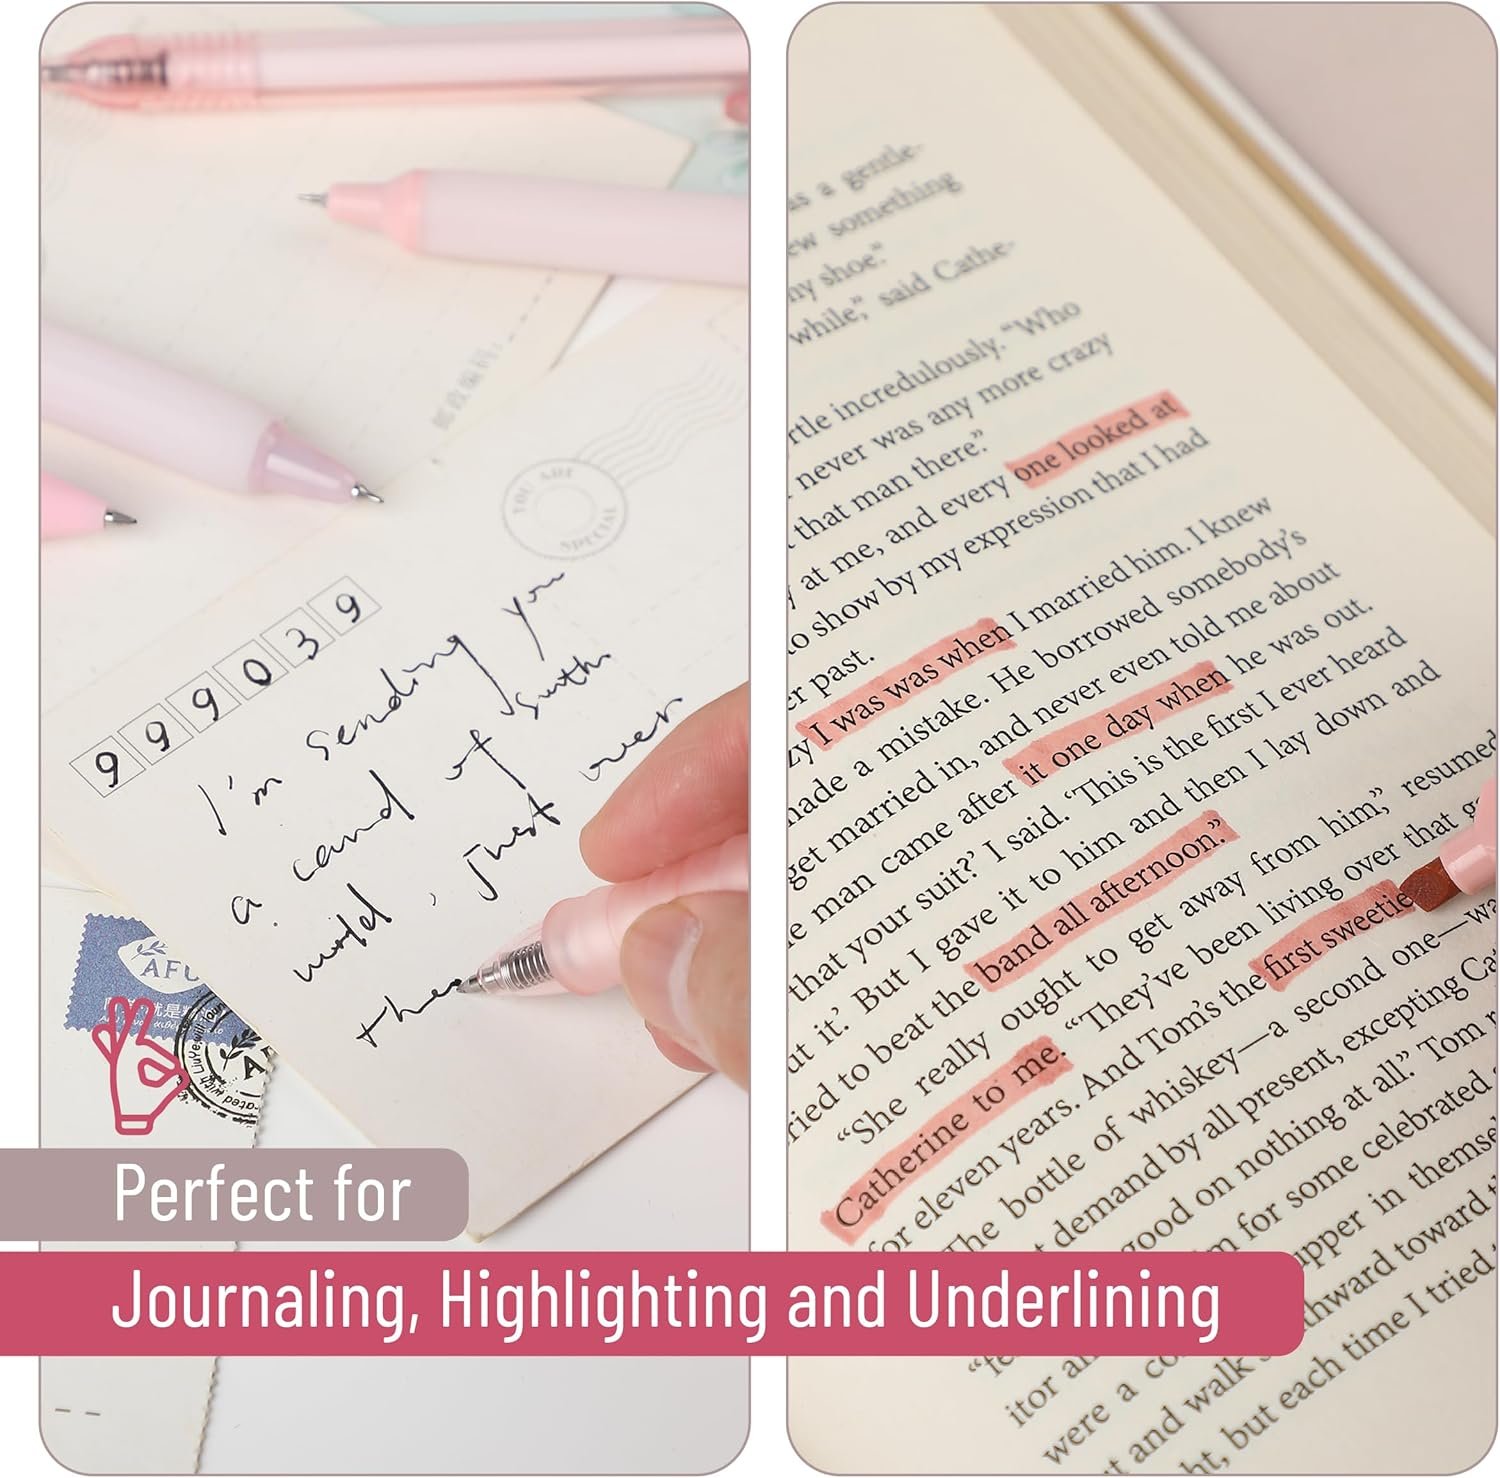 郵政編碼:
YOU ARE
SPECIAL
9 9 9 0 3 9
I'm sending you
a card of
world, just over
there
AFU
Perfect for
Journaling, Highlighting and Underlining
as a gentle-
something
my shoe."
while," said Cathe-
incredulously. "Who
never was any more crazy
that man there."
at me, and every one looked at
to show by my expression that I had
past.
I was was when I married him. I knew
made a mistake. He borrowed somebody's
get married in, and never even told me about
man came after it one day when he was out.
that your suit?' I said. 'This is the first I ever heard
it.' But I gave it to him and then I lay down and
to beat the band all afternoon."
"She really ought to get away from him," resumed
Catherine to me. "They've been living over that
for eleven years. And Tom's the first sweetie
The bottle of whiskey—a second one—
demand by all present, excepting
good on nothing at all." Tom
for some celebrated
upper in
toward
were a
and walk
but each time I tried